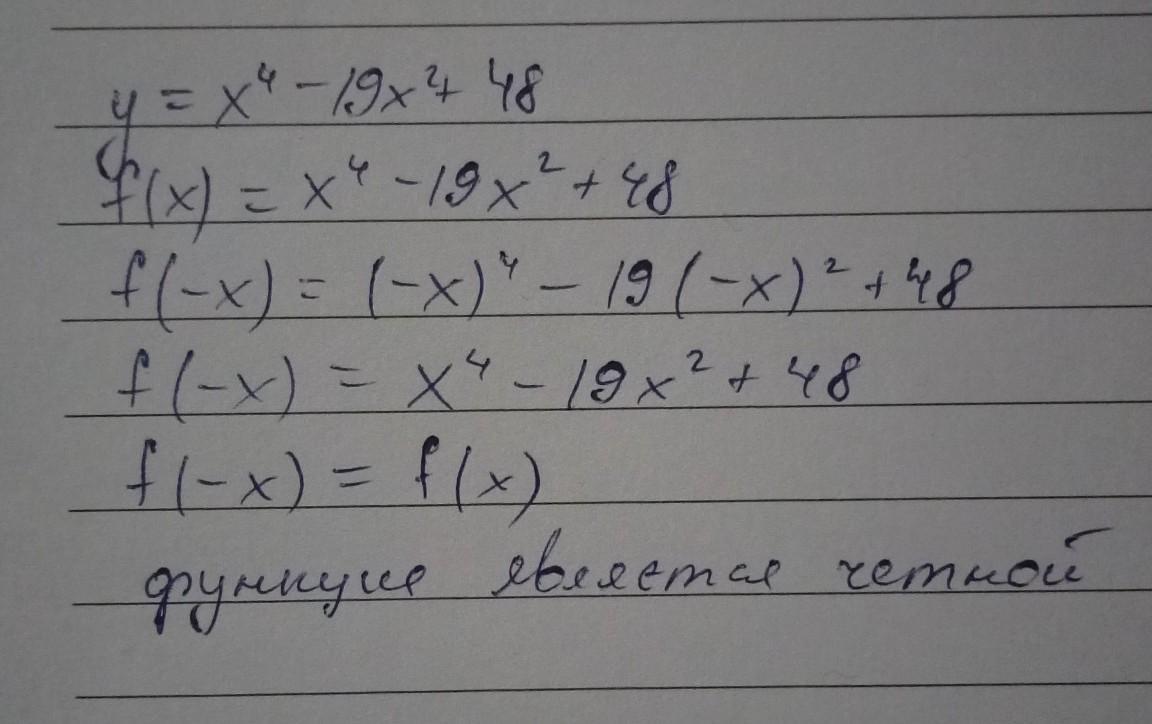 y = x⁴ - 19x² + 48
f(x) = x⁴ - 19x² + 48
f(-x) = (-x)⁴ - 19(-x)² + 48
f(-x) = x⁴ - 19x² + 48
f(-x) = f(x)
функция является четной